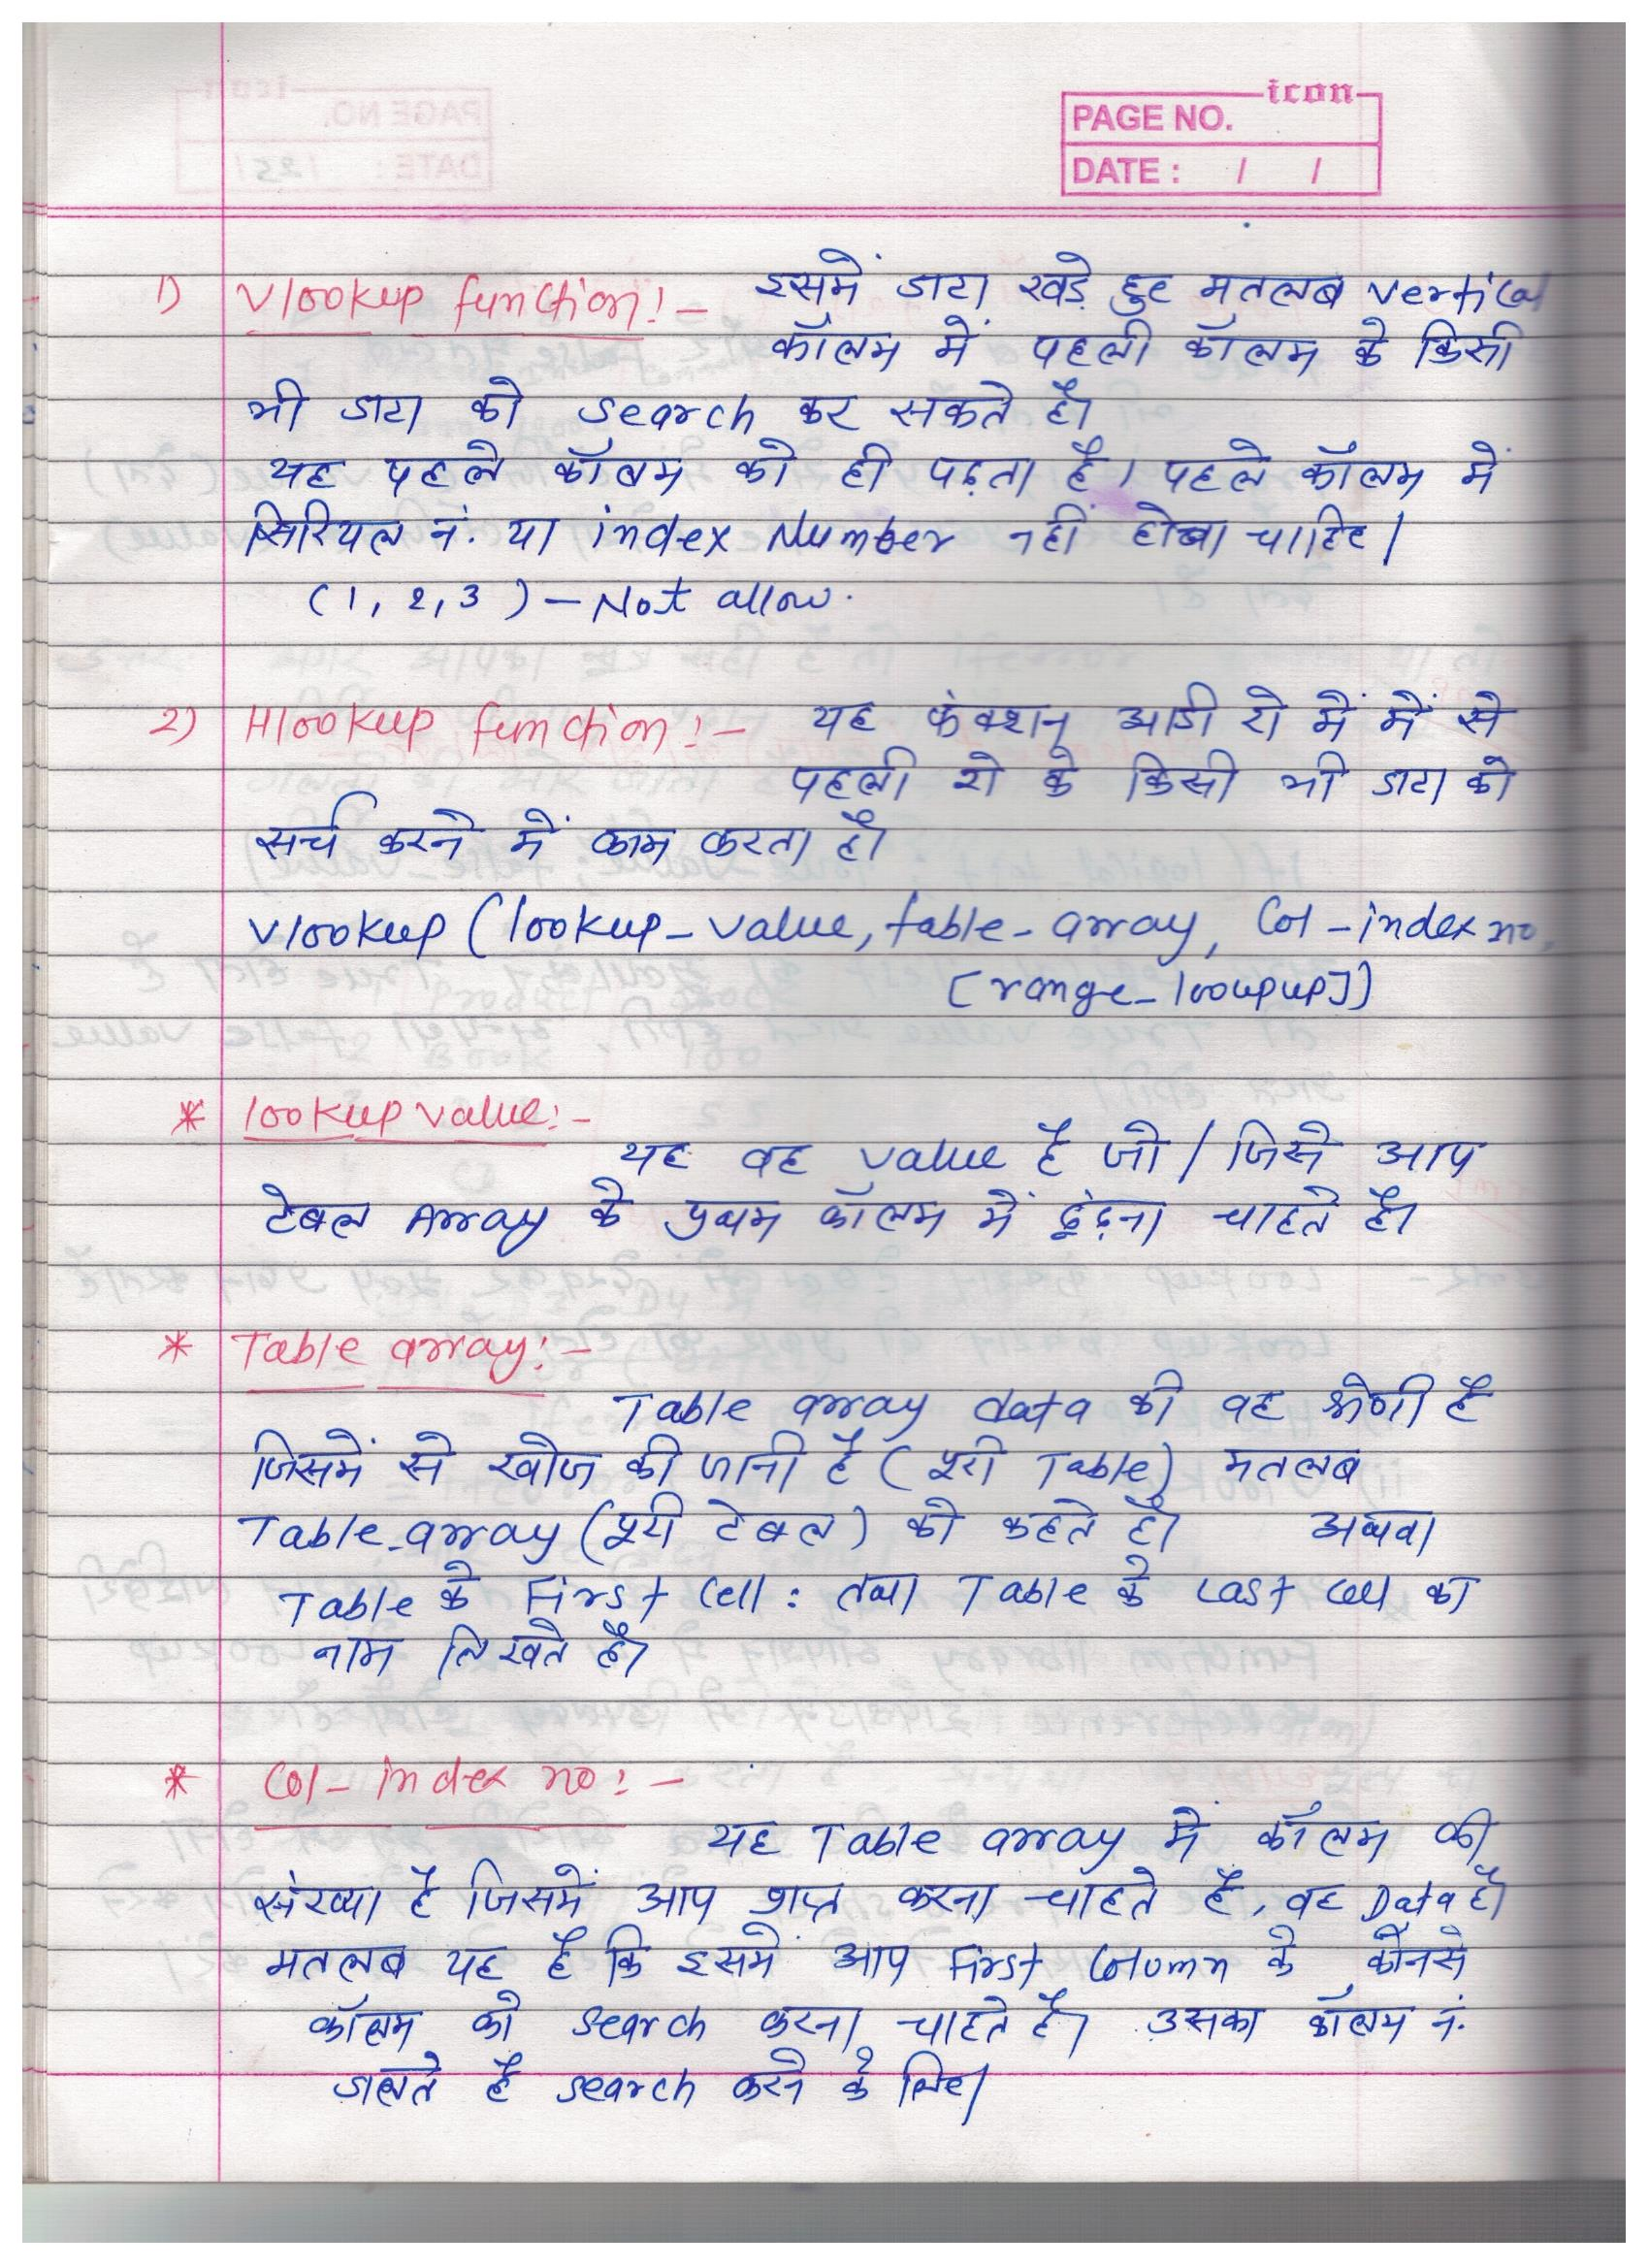 icon
PAGE NO.
DATE : / /
1) Vlookup function:- इसमें डाटा खड़े हुए मतलब vertical
कॉलम में पहली कॉलम के किसी
भी डाटा को search कर सकते है।
यह पहले कॉलम को ही पढ़ता है। पहले कॉलम में
सिरियल नं. या index Number नहीं होना चाहिए।
(1, 2, 3 ) – Not allow.
2) Hlookup function:- यह फंक्शन आडी रो में में से
पहली रो के किसी भी डाटा को
सर्च करने में काम करता है।
Vlookup (lookup_value, table-array, Col-index no,
[range_loouplup])
* lookup value:-
यह वह value है जो / जिसे आप
टेबल Array के प्रथम कॉलम में ढूंढ़ना चाहते है।
* Table array:-
Table array data की वह श्रेणी है
जिसमें से खोज की जानी है (पूरी Table) मतलब
Table_array (पूरी टेबल) को कहते है। अथवा
Table के First Cell : तथा Table के Last Cell का
नाम लिखते है।
* Col- index no:-
यह Table array में कॉलम की
संख्या है जिसमें आप प्राप्त करना चाहते है, वह Data है।
मतलब यह है कि इसमें आप First Column के कौनसे
कॉलम को search करना चाहते है। उसका कॉलम नं.
डालते है search करने के लिए।